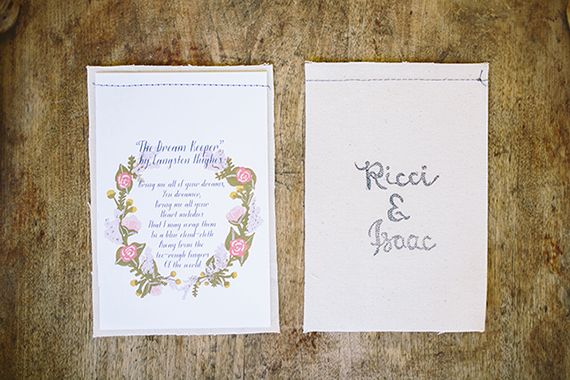 "The Dream Keeper,"
by Langston Hughes
Bring me all of your dreams,
You dreamer,
Bring me all your
Heart melodies
That I may wrap them
In a blue cloud-cloth
Away from the
too-rough fingers
Of the world
Ricci
&
Isaac